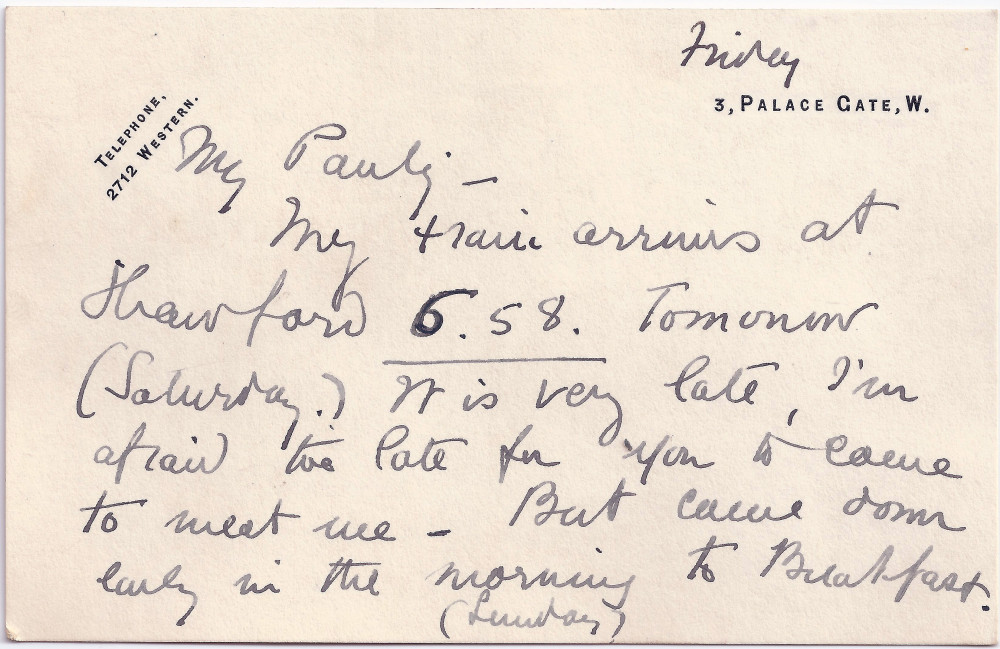 Friday
3, PALACE GATE, W.
TELEPHONE,
2712 WESTERN.
My Pauly –
My train arrives at
Shawford 6.58. Tomorrow
(Saturday.) It is very late, I'm
afraid too late for you to come
to meet me – But come down
early in the morning to Breakfast.
(Sunday)